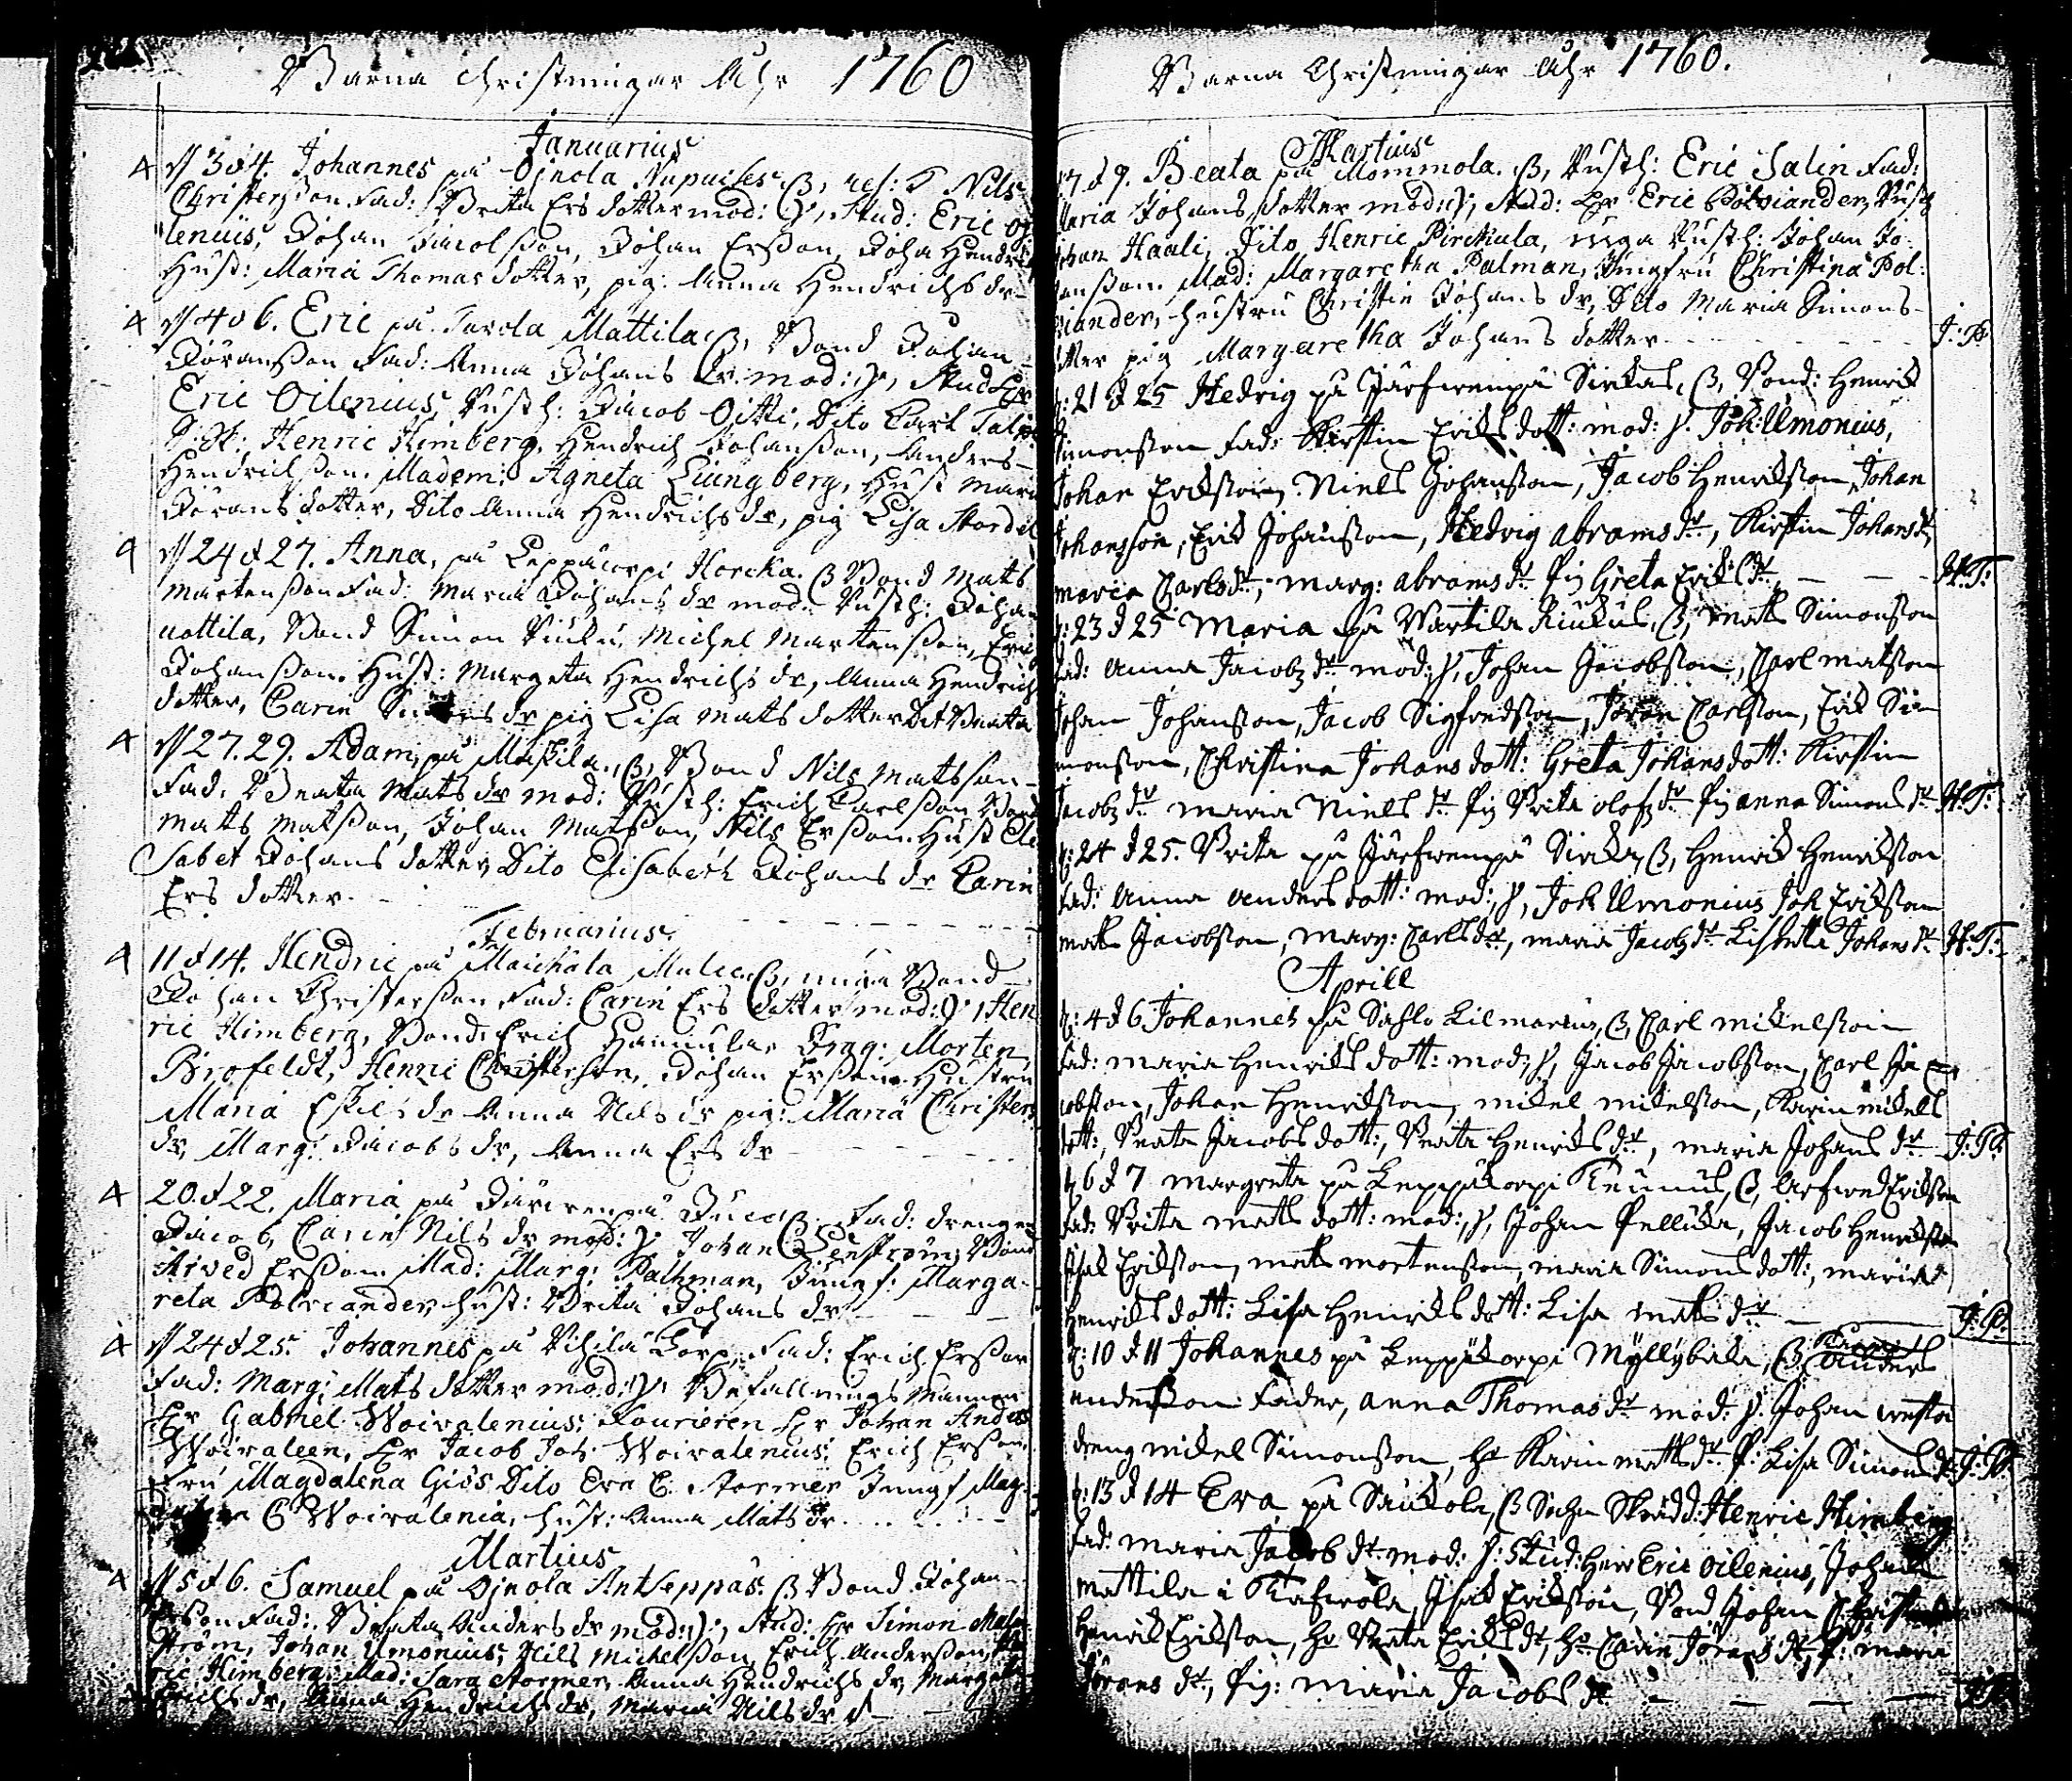 Barna Christningar Åhr 1760
Januarius
N 3 d 4. Johannes på Ojnola Nupuiles B, ref: T Nils
Christersson Fad: Brita Ers dotter mod: S, Stud: Eric Oj
lenius, Johan Jacolsson, Johan Ersson, Joha Hendri
Hust: Maria Thomas dotter, pig: Anna Hendrichs dr
N 4 d 6. Eric på Tarola Mattila B, Bond Johan
Jöransson Fad: Anna Johans dr mod: S, Stud Hr
Eric Oilenius, Rusth: Jacob Oitti, Dito Carl Tal
S: St: Henric Himberg, Hendrich Johansson, Anders
Hendrichsson. Madem: Agneta Liungberg, Hust Mar
Jörans dotter, Dito Anna Hendrichs dr, pig Lisa
N 24 d 27. Anna, på Leppäcorpi Horcka. B Bond Mats
Mårtensson Fad: Maria Johans dr mod: Rusth: Johan
uottila, Bond Simon Michel Martensson, Eric
Johansson. Hust: Margeta Hendrichs dr, Anna Hendrich
dotter, Carin dr pig Lisa Mats dotter Beata
N 27. 29. Adam, på Maskila, B, Bond Nils Matsson
Fad: Beata Mats dr mod: Rusth: Erich Carlsson Bond
Mats Matsson, Johan Matsson, Nils Ersson. Hust Eli
Sabet Johans dotter, Dito Elisabeth Johans dr Carin
Ers dotter.
Februarius
11 d 14. Hendric på Maickala Mulic B, unga Bond
Johan Christersson Fad: Carin Ers dotter mod: S, Hen
ric Himberg, Bond: Erich Hannula, Drag: Morten
Brofeldt, Henric Christerson, Johan Ersson. Hustru
Maria Eskils dr Anna Nils dr pig: Maria Christers
dr, Marg: Jacobs dr, Anna Ers dr
20 d 22. Maria på Järvenpä B, Fad: drengen
Jacob, Carin Nils dr mod: S Johan Bond
Arved Ersson. Mad: Marg: Palhman, Jungf: Marga-
reta Polviander, hust: Brita Johans dr
N 24 d 25. Johannes på Vihilä Torp, Fad: Erich Ersson
Fad: Marg: Mats dotter mod: S, Befallnings Mannen
Hr Gabriel Woivalenius: Fourieren Hr Johan Anders
Woivaleen, Hr Jacob Joh: Woivalenius: Erich Ersson
Fru Magdalena Giös Dito Eva C. Stormer Jungf Mag-
C Woivalenia, hust: Anna Mats dr
Martius
N 5 d 6. Samuel på Ojnola Antseppäs. B Bond Johan
Ersson Fad: Beata Anders dr mod: S, Stud: Hr Simon Malm
ström, Johan Ilmonius; Nils Michelsson, Erich Andersson, Hen
ric Himberg. Mad: Sara Stormer, Anna Hendrichs dr, Margeta
Erichs dr, Anna Hendrichs dr, Maria Nils dr
Barna Christningar Åhr 1760.
Martius
7 d 9. Beata på Mommola. B, Rusth: Eric Salin Fad:
Maria Johans dotter mod: S, Stud: Hr Eric Polviander, Rusth
Johan Haali, Dito Henric Pirckula, unga Rusth: Johan Jo-
hansson. Mad: Margaretha Palman, Jungfru Christina Pol-
viander, hustru Christin Johans dr, Dito Maria Simons-
dotter pig Margaretha Johans dotter J: P
d: 21 d 25 Hedvig på Järfwenpä Sirckas, B, Bond: Henrik
Simonsson Fad: Kirstin Eriks dott: mod: S. Joh: Ilmonius,
Johan Eriksson, Niels Johansson, Jacob Henriksson, Johan
Johansson, Erik Johansson, Hedvig Abrams dr, Kirstin Johans dr,
Maria Carls dr, Marg: Abrams dr Pig Greta Eriks dr H: T:
d: 23 d 25 Maria på Wärtila Kiukus, B, Mats Simonsson
Fad: Anna Jacobz dr mod: S, Johan Jacobsson, Carl Matsson
Johan Johansson, Jacob Sigfredsson, Jöran Carlsson, Erik Sim
monsson, Christina Johans dott: Greta Johans dott: Kirstin
Jacobz dr Maria Niels dr Pig Brita Olofz dr Pig Anna Simons dr H: T:
d: 24 d 25. Brita på Järfwenpä Sirckas, B, Henrik Henriksson
Fad: Anna Anders dott: mod: S, Joh Ilmonius Joh Eriksson
Mats Jacobsson, Marg: Carls dr, Maria Jacobz dr Lisbetta Johans dr H: T:
Aprill
d: 4 d 6 Johannes på Sahlo Lilmarius, B, Carl Mikelsson
Fad: Maria Henriks dott: mod: S, Jacob Jacobsson, Carl Ja
cobsson, Johan Henriksson, Mikel Mikelsson, Karin Mikels
dott:, Beata Jacobs dott:, Beata Henriks dr, Maria Johans dr J: P:
d 6 d 7 Margreta på Leppäkorpi Keunus, B, Arfwed Eriksson
Fad: Brita Mats dott: mod: S, Johan Pellicka, Jacob Henriksson
Isak Eriksson, Mats Mortensson, Maria Simons dott:, Maria
Henriks dott: Lisa Henriks dott: Lisa Mats dr J: P:
d: 10 d 11 Johannes på Leppäkorpi Myllykylä, B, Anders
Andersson Fader, Anna Thomas dr mod: S. Johan
dreng Mikel Simonsson, H: Karin Matts dr P: Lisa Simons dr J: P:
d: 13 d 14 Eva på Saukola, B Sochn Skrädd: Henric Himberg
Fad: Maria Jacob dr mod: S: Stud: Herr Eric Oilenius, Johan
Mattila i Tafwola, Isak Eriksson, Bond Johan
Henrik Eriksson, H: Beata Eriks dr, H: Carin Jörans dr, P: Maria
Jörans dr, Pig: Maria Jacobs dr